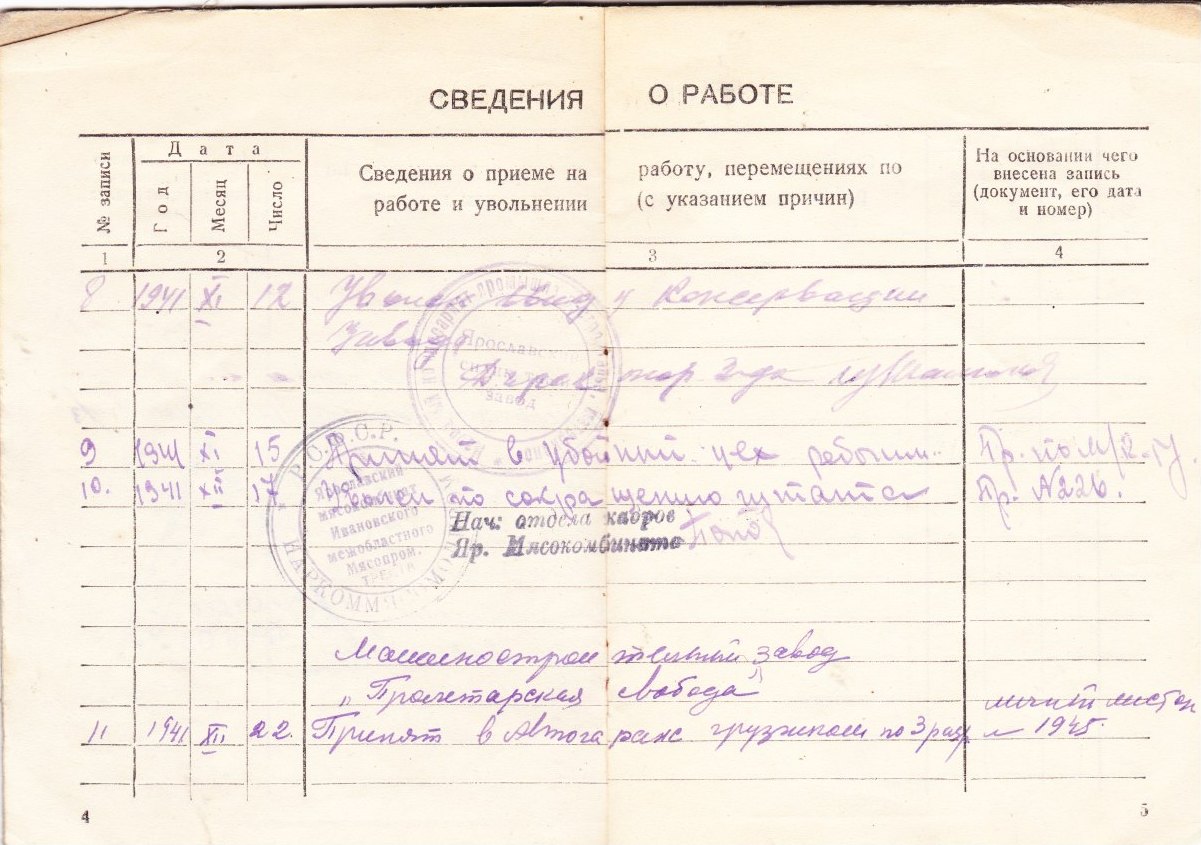 СВЕДЕНИЯ О РАБОТЕ
№ записи
Дата
Год
Месяц
Число
Сведения о приеме на работу, перемещениях по
работе и увольнении (с указанием причин)
На основании чего
внесена запись
(документ, его дата
и номер)
1 2 3 4
8 1941 XI 12 Уволен ввиду консервации
завода
Директор з-да
Ярославский
завод
9 1941 XI 15 Принят в убойный цех рабочим Пр. по м/к
10. 1941 XII 17 Уволен по сокращению штата Пр. №226.
Р.С.Ф.С.Р.
НАРКОММЯСОМОЛПРОМ
Ярославский
мясокомбинат
Ивановского
межобластного
Мясопром.
ТРЕСТА
Нач. отдела кадров
Яр. Мясокомбината
Машиностроительный завод
„Пролетарская Свобода"
11 1941 XII 22 Принят в Автогараж грузчиком по 3 разр. 1945
4
5